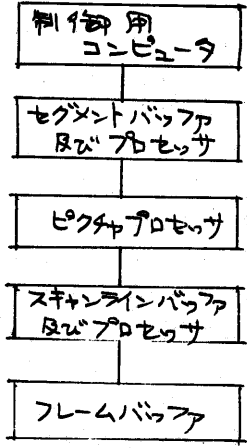 制御用
コンピュータ
セグメントバッファ
及びプロセッサ
ピクチャプロセッサ
スキャンラインバッファ
及びプロセッサ
フレームバッファ